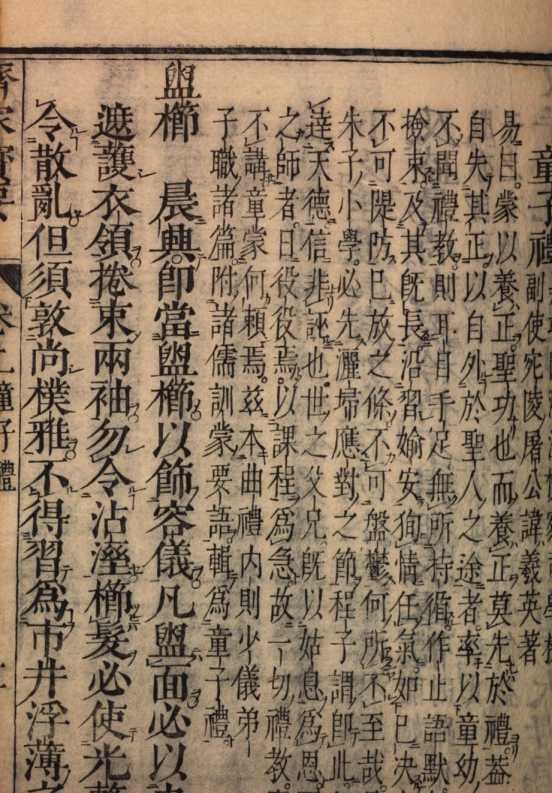 童子禮
副使宛陵屠公諱羲英著
易曰蒙以養正聖功也而養正莫先於禮葢
自失其正以自外於聖人之途者率以童幼
不聞禮教則耳目手足無所持循作止語默
撿束及其旣長沿習媮安狥情任氣如已決
不可隄防已放之條不可盤鬱何所不至哉
朱子小學必先灑埽應對之節程子謂卽此
達天德信非誣也世之父兄旣以姑息爲恩
之師者日役役焉以課程爲急故一切禮教
不講童蒙何頼焉茲本曲禮內則少儀弟
子職諸篇附諸儒訓蒙要語輯爲童子禮
盥櫛 晨興卽當盥櫛以飾容儀凡盥面必以
遮護衣領捲束兩袖勿令沾溼櫛髮必使光整
令散亂但須敦尚樸雅不得習爲市井浮薄
齊家寶要 童子禮